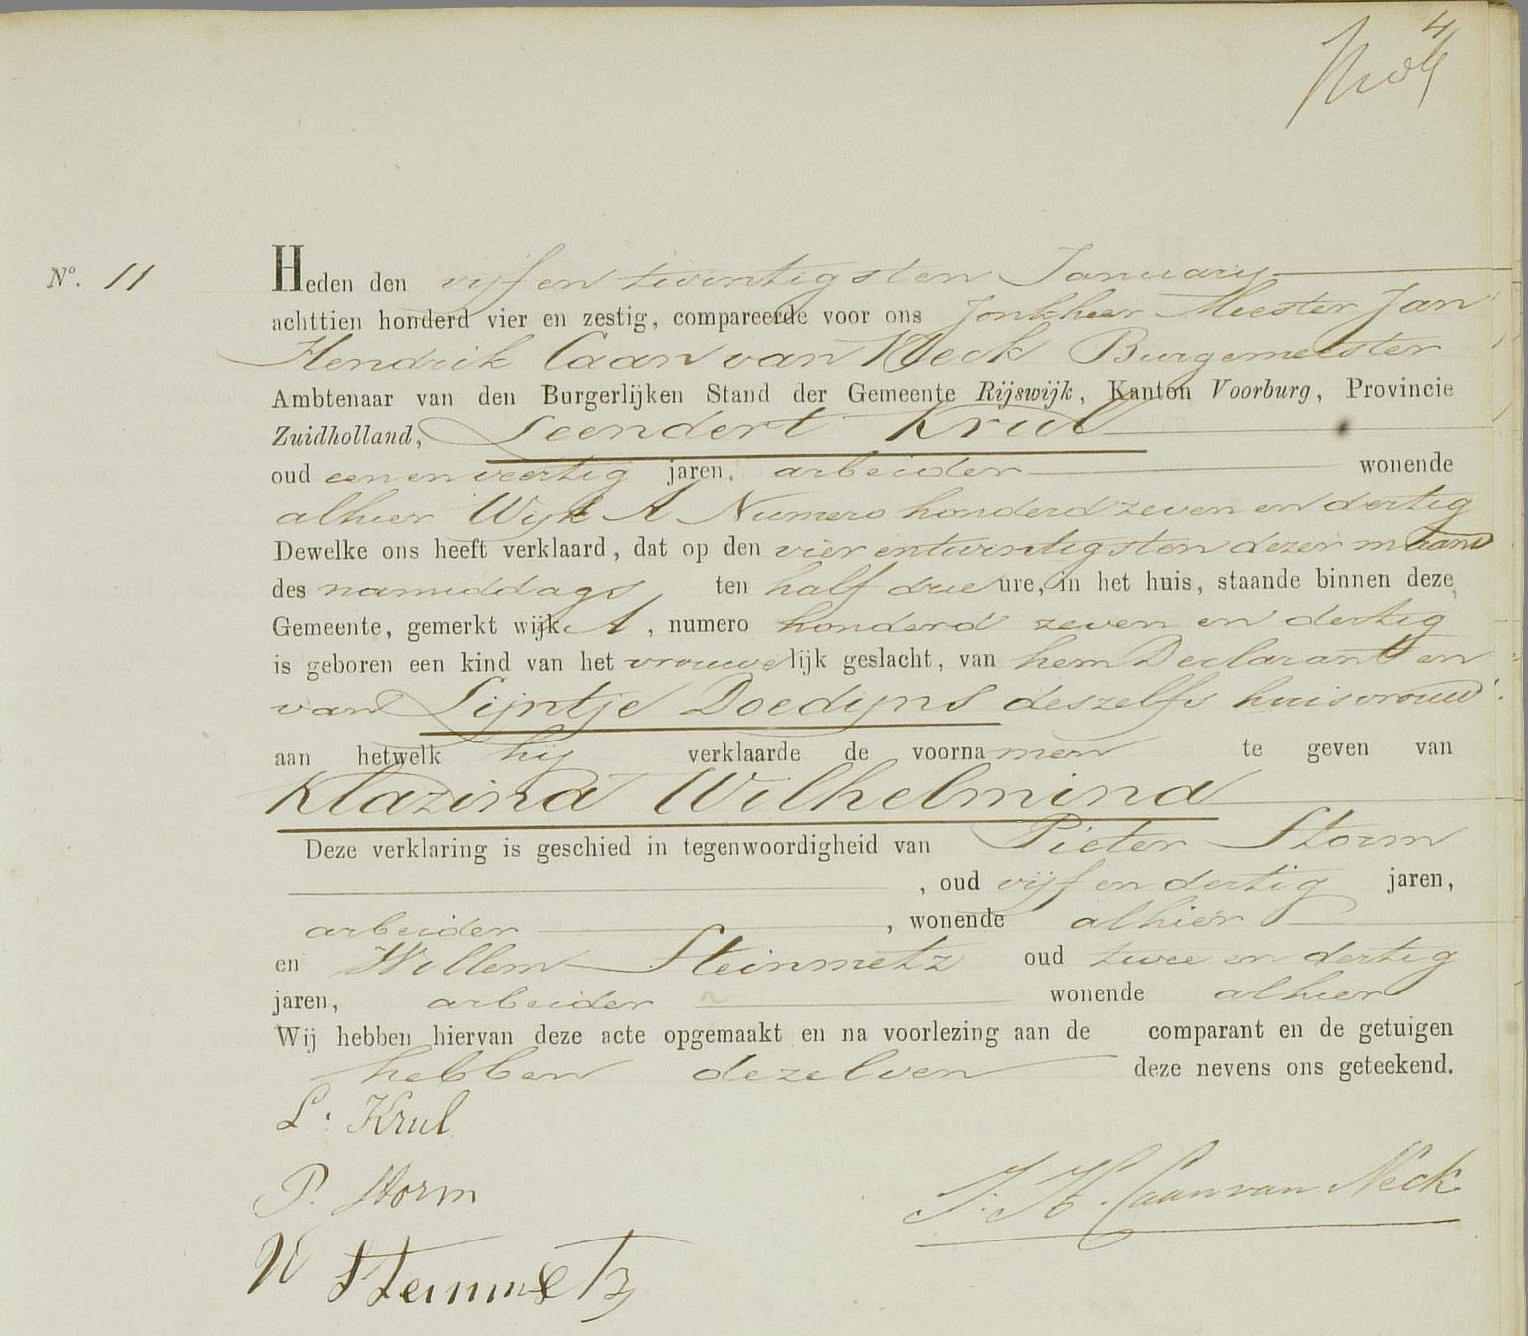 4
No. 11
Heden den vijf en twintigsten January
achttien honderd vier en zestig, compareerde voor ons Jonkheer Meester Jan
Hendrik Caan van Neck Burgemeester
Ambtenaar van den Burgerlijken Stand der Gemeente Rijswijk, Kanton Voorburg, Provincie
Zuidholland, Leendert Krul
oud een en veertig jaren, arbeider wonende
alhier Wijk A Numero honderd zeven en dertig
Dewelke ons heeft verklaard, dat op den vier en twintigsten dezer maand
des namiddags ten half drie ure, in het huis, staande binnen deze
Gemeente, gemerkt wijk A, numero honderd zeven en dertig
is geboren een kind van het vrouwelijk geslacht, van hem Declarant en
van Lijntje Doedijns deszelfs huisvrouw
aan hetwelk hij verklaarde de voornamen te geven van
Klazina Wilhelmina
Deze verklaring is geschied in tegenwoordigheid van Pieter Storm
, oud vijf en dertig jaren,
arbeider , wonende alhier
en Willem Steinmetz oud twee en dertig
jaren, arbeider wonende alhier
Wij hebben hiervan deze acte opgemaakt en na voorlezing aan de comparant en de getuigen
hebben dezelven deze nevens ons geteekend.
L. Krul
P. Storm
J. H. Caan van Neck
W Steinmetz